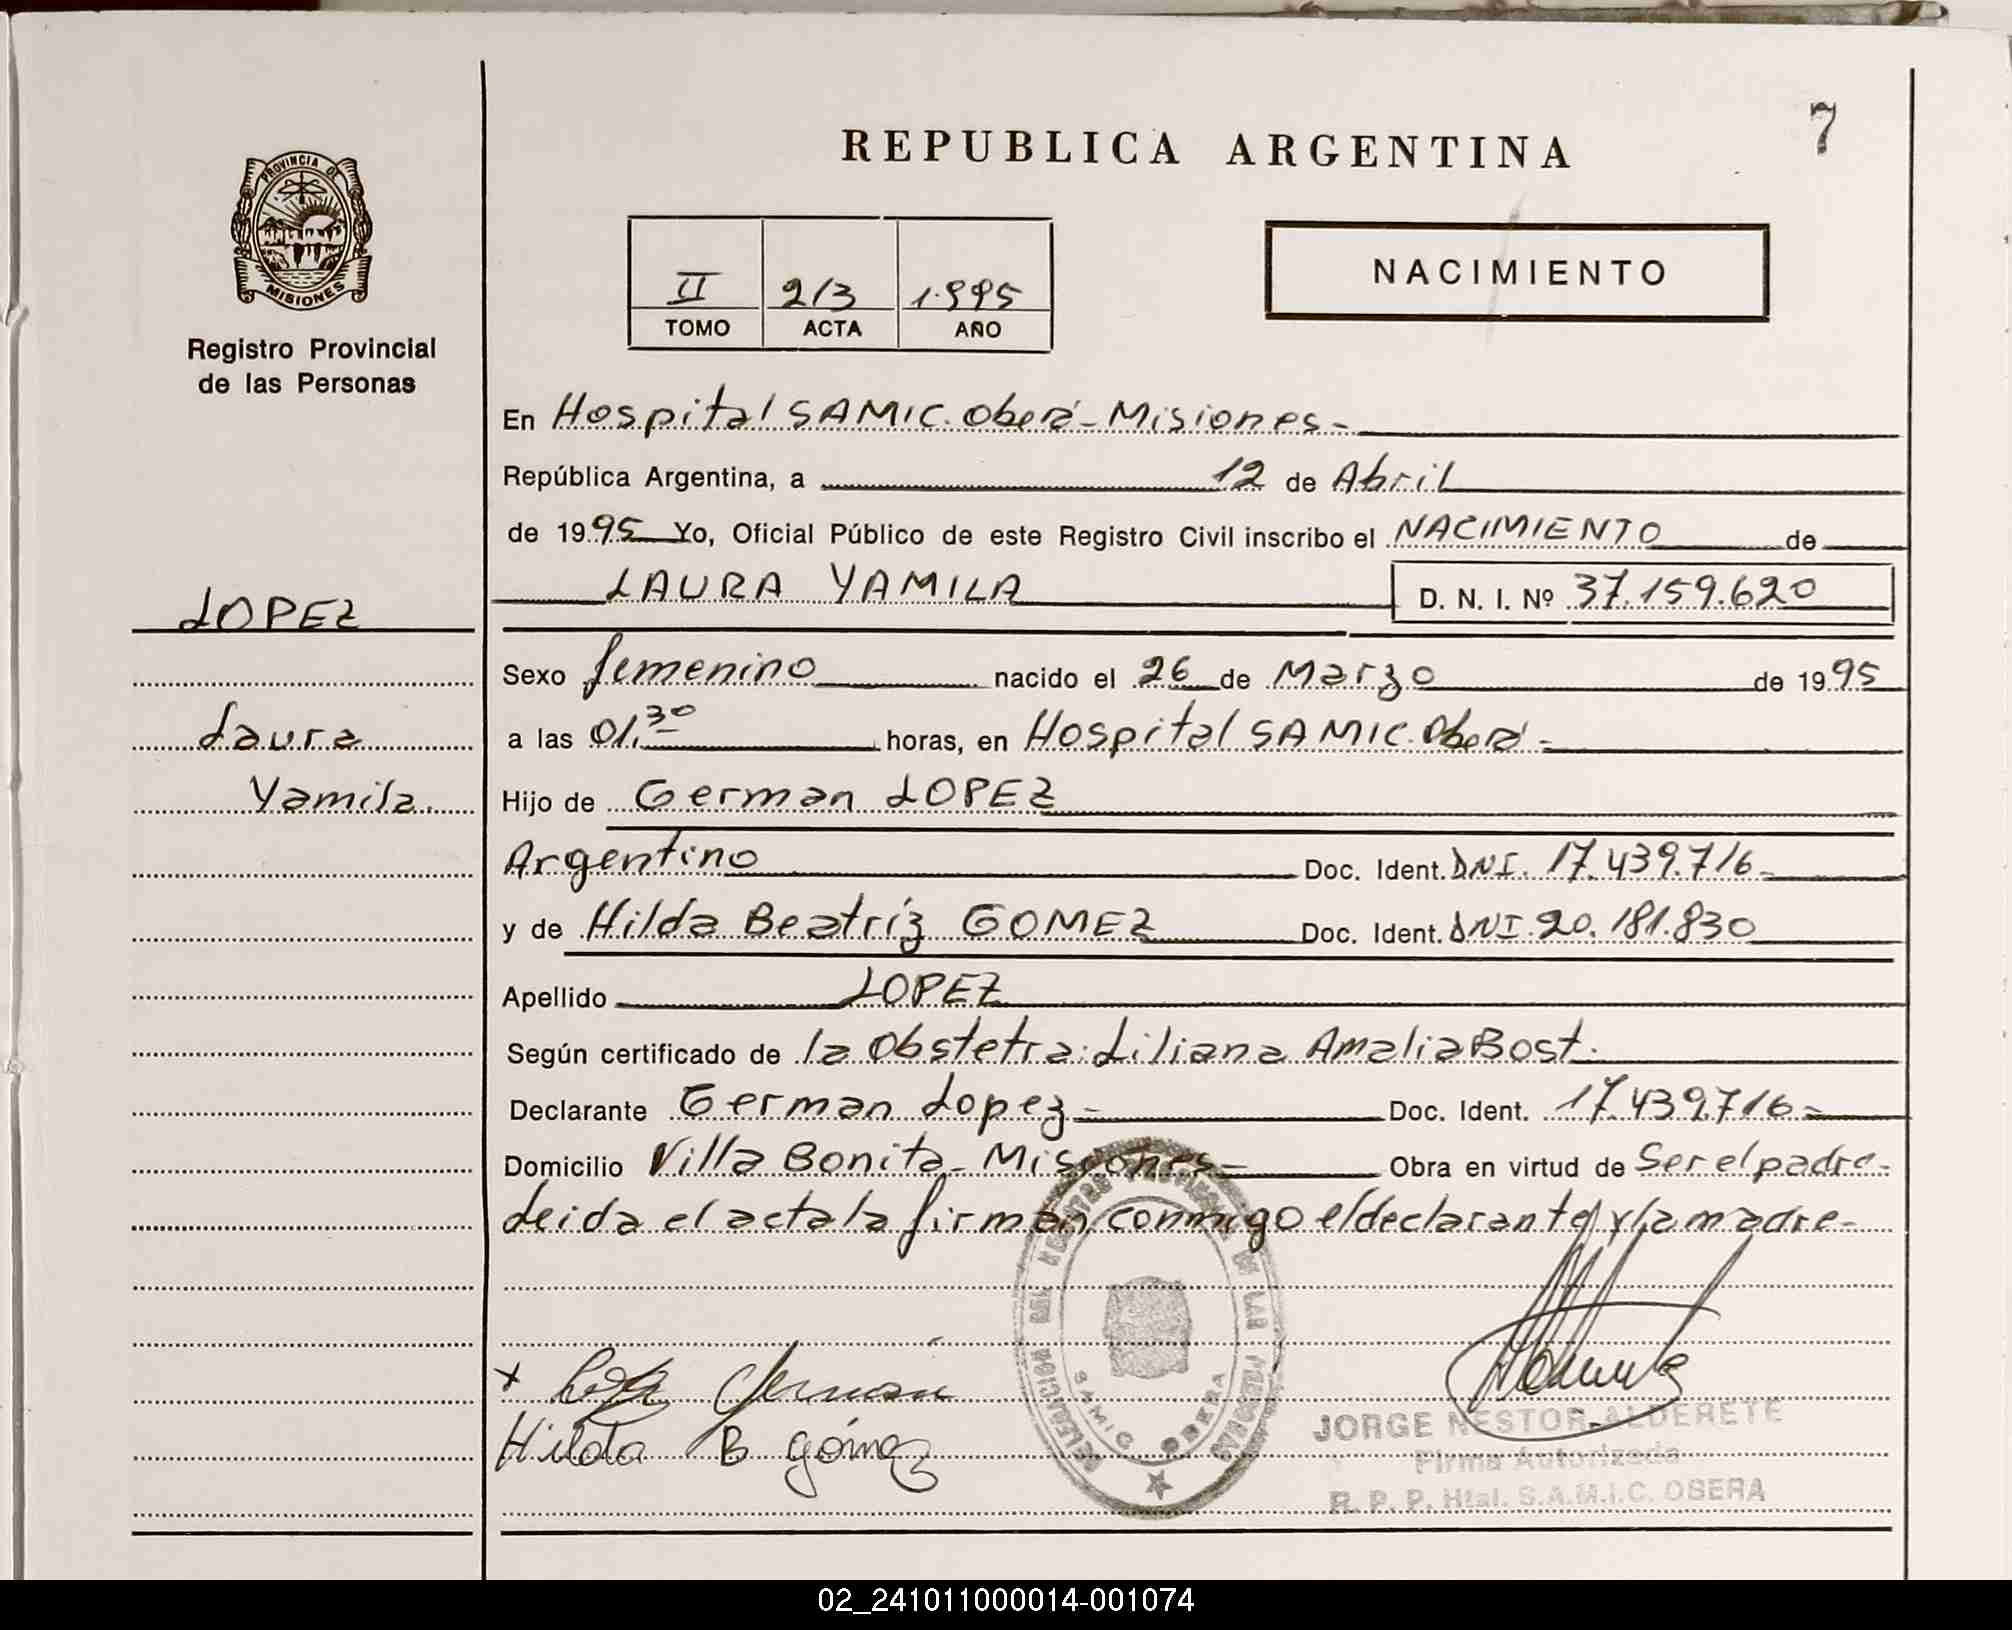 7
REPUBLICA ARGENTINA
PROVINCIA DE
MISIONES
Registro Provincial
de las Personas
II 213 1.995
TOMO ACTA AÑO
NACIMIENTO
En Hospital SAMIC. Oberá - Misiones -
República Argentina, a 12 de Abril
de 1995 Yo, Oficial Público de este Registro Civil inscribo el NACIMIENTO de
LAURA YAMILA D. N. I. Nº 37.159.620
LOPEZ
Laura
Yamila.
Sexo femenino nacido el 26 de Marzo de 1995
a las 01.30 horas, en Hospital SAMIC. Oberá -
Hijo de German LOPEZ
Argentino Doc. Ident. DNI. 17.439.716 -
y de Hilda Beatríz GOMEZ Doc. Ident. DNI. 20.181.830
Apellido LOPEZ
Según certificado de la Obstetra: Liliana Amalia Bost.
Declarante German Lopez - Doc. Ident. 17.439.716 -
Domicilio Villa Bonita - Misiones - Obra en virtud de Ser el padre -
Leida el acta la firman, conmigo el declarante y la madre -
DELEGACION DEL REGISTRO PROVINCIAL DE LAS PERSONAS
SAMIC OBERA
x Lopez German
Hilda B gómez
JORGE NESTOR ALDERETE
Firma Autorizada
R. P. P. Htal. S.A.M.I.C. OBERA
02_241011000014-001074